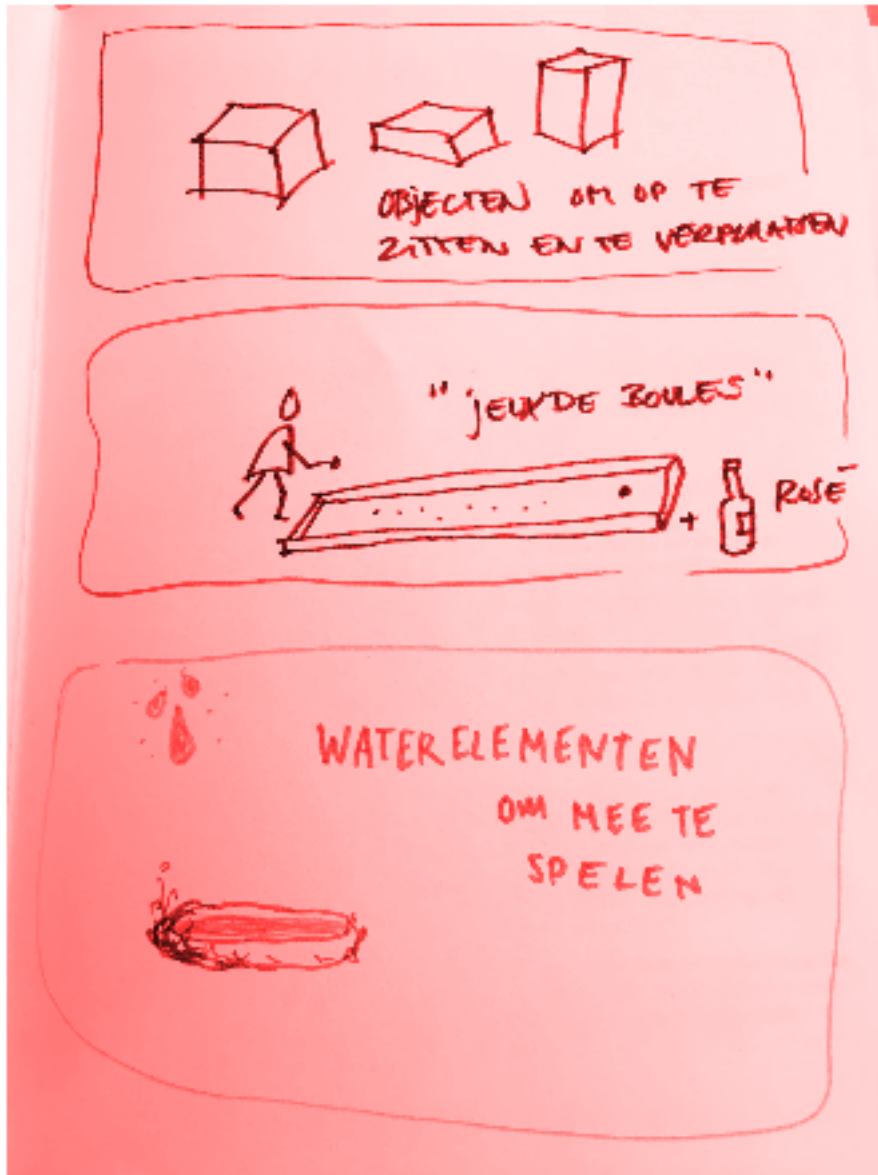 OBJECTEN OM OP TE
ZITTEN EN TE VERPLAATSEN
"JEUX DE BOULES"
+ ROSÉ
WATERELEMENTEN
OM MEE TE
SPELEN